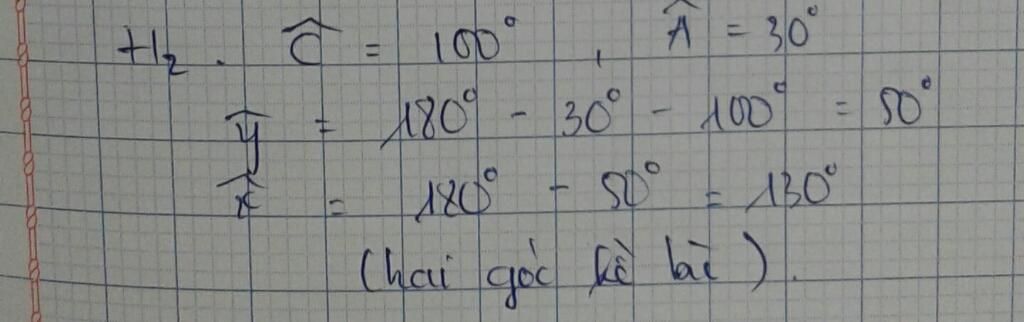 H₂. Ĉ = 100°, Â = 30°
ŷ = 180° - 30° - 100° = 50°
x̂ = 180° - 50° = 130°
(hai góc kề bù).